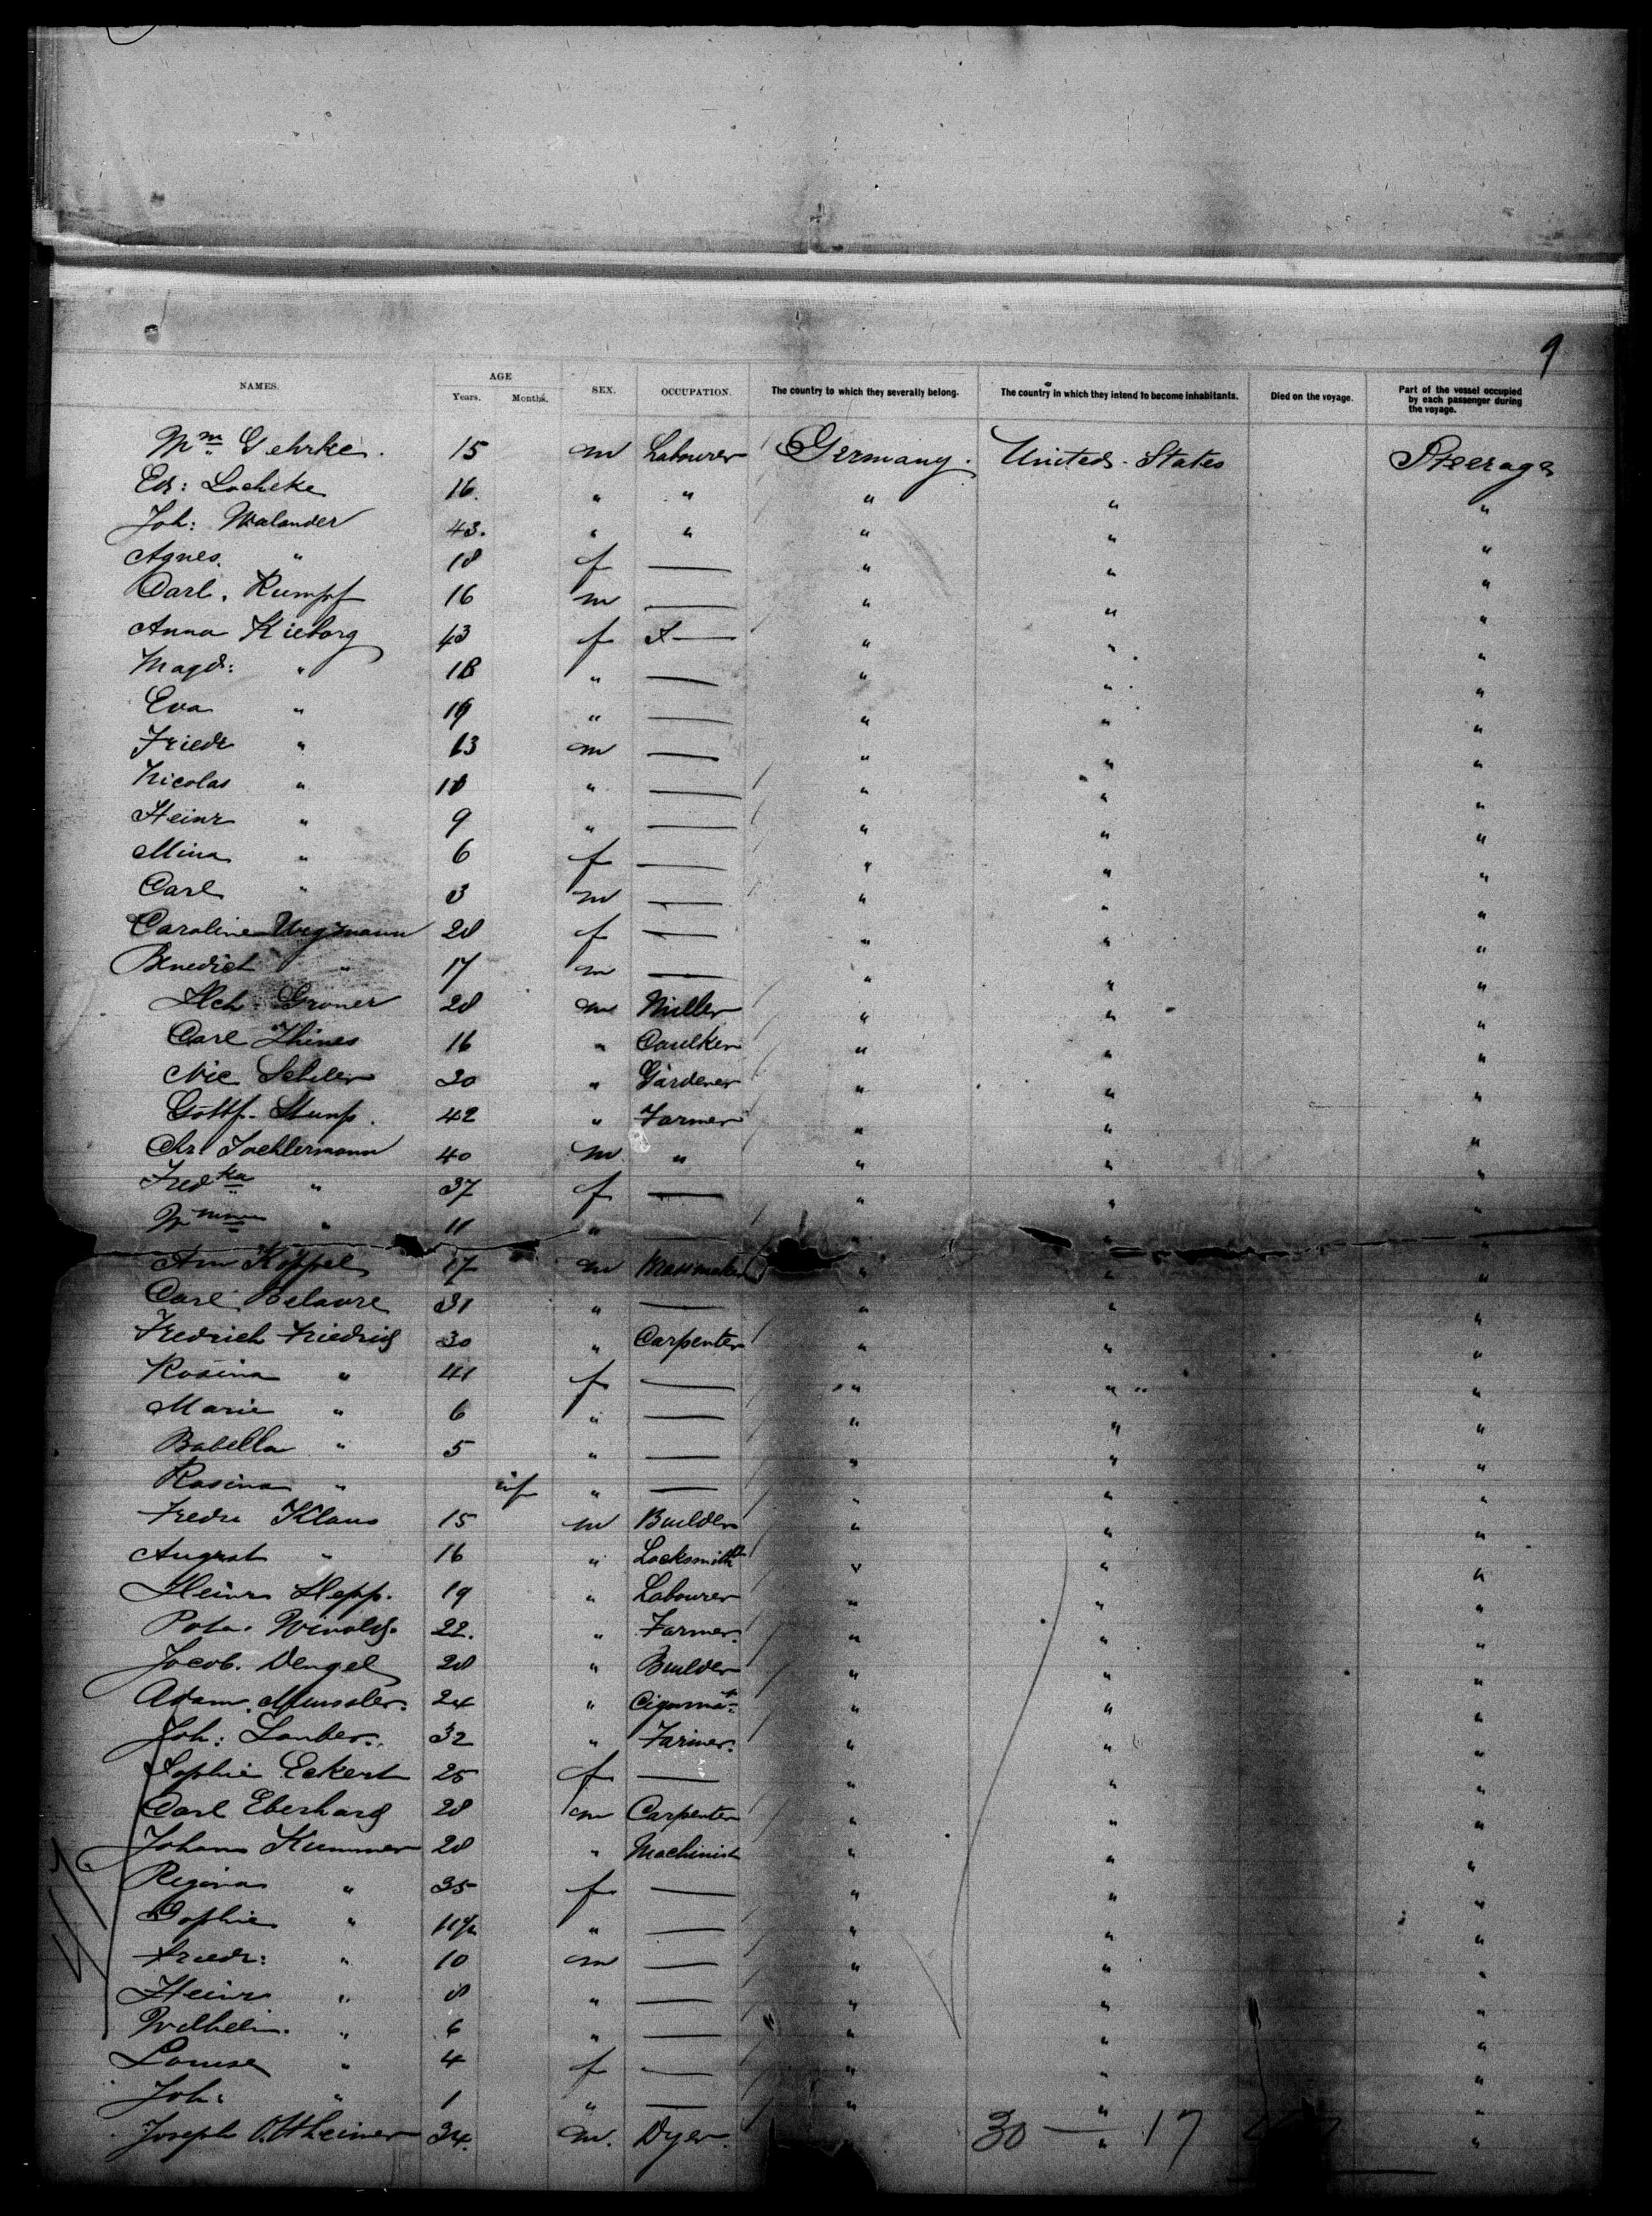 9
NAMES. AGE Years. Months. SEX. OCCUPATION. The country to which they severally belong. The country in which they intend to become inhabitants. Died on the voyage. Part of the vessel occupied by each passenger during the voyage.
Wm Gehrke. 15 m Labourer Germany. United States Steerage
Ed: Locheke 16. " " " " "
Joh: Walander 43. " " " " "
Agnes. " 18 f — " " "
Carl. Rumpf 16 m — " " "
Anna Kieborg 43 f — " " "
Magd: " 18 " — " " "
Eva " 19 " — " " "
Friedr " 13 m — " " "
Nicolas " 10 " — " " "
Heinr " 9 " — " " "
Mina " 6 f — " " "
Carl " 3 m — " " "
Caroline 28 f — " " "
Benedict " 17 m — " " "
Groner 28 m Miller " " "
Carl Thines 16 " Caulker " " "
Nic 30 " Gardener " " "
Gottf. Stump. 42 " Farmer " " "
Chr. 40 m " " " "
Fredka " 37 f — " " "
" 11 " — " " "
Köppel 17 m " " "
Carl Belavre 31 " — " " "
Fredrich Friedrich 30 " Carpenter " " "
Rosina " 41 f — " " "
Marie " 6 " — " " "
Babella " 5 " — " " "
Rosina " inf " — " " "
Fredr Klaus 15 m Builder " " "
August " 16 " Locksmith " " "
Heinr Hepp. 19 " Labourer " " "
22. " Farmer. " " "
Jacob. Dengel 28 " Builder " " "
Adam. Mussler. 24 " " " "
Joh: Lauber. 32 " Farmer. " " "
Sophie Eckert 25 f — " " "
Carl Eberhard 28 m Carpenter " " "
Johann Kummer 28 " Machinist " " "
Regina " 35 f — " " "
Sophie " 11½ " — " " "
Friedr: " 10 m — " " "
Heinr " 8 " — " " "
Wilhelm. " 6 " — " " "
Louise " 4 f — " " "
Joh: " 1 " — " " "
Joseph Ottheimer 34. m. Dyer. " "
30 — 17